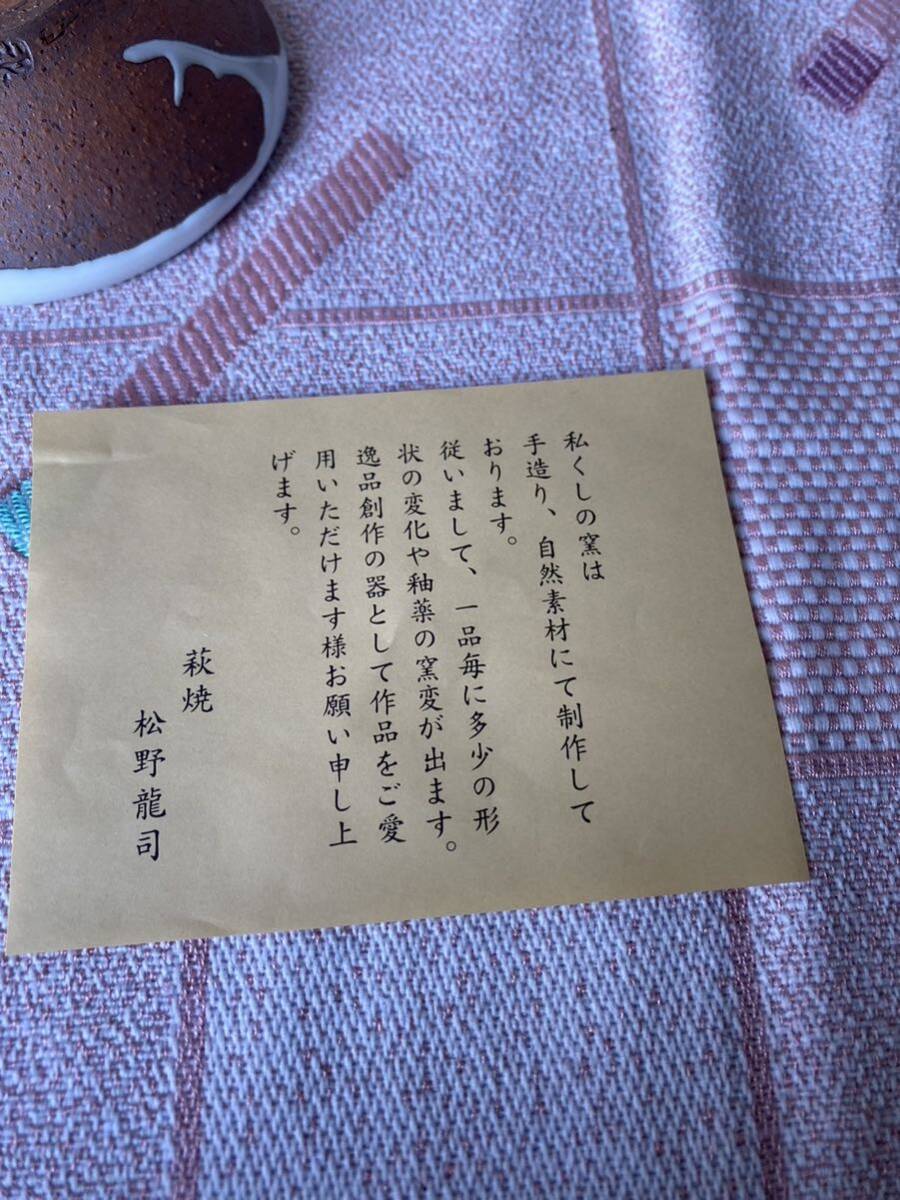 私くしの窯は
手造り、自然素材にて制作して
おります。
従いまして、一品毎に多少の形
状の変化や釉薬の窯変が出ます。
逸品創作の器として作品をご愛
用いただけます様お願い申し上
げます。
萩焼
松野龍司